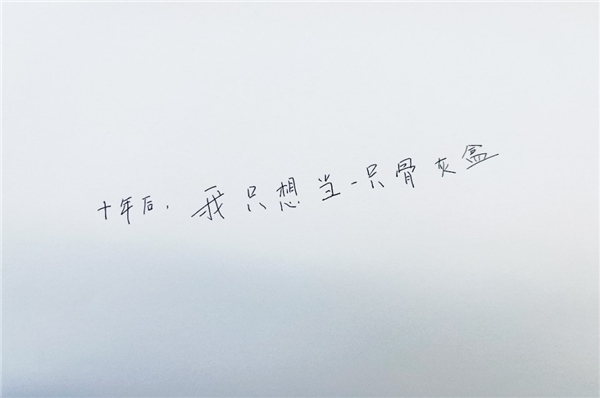 十年后，我只想当一只骨灰盒